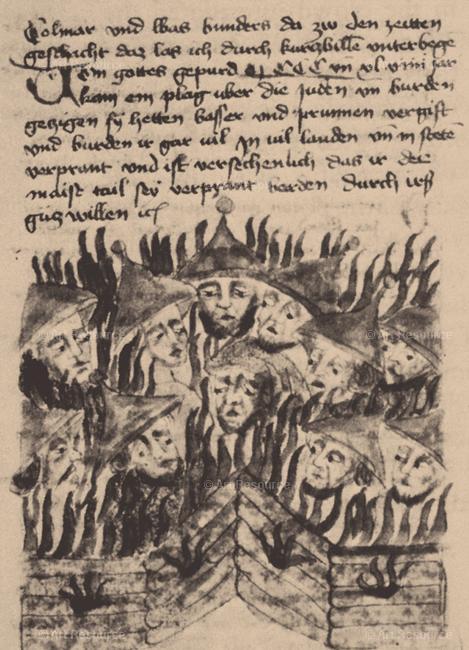 Colmar vnd was wunders da zw den zeitten
geschicht daz las ich durch kurczwille vnterwege
Um gottes gepurd M CCC vn xl viiii jar
kam ein plag vber die juden vn wurden
gezigen sy hetten wasser vnd prunnen vergift
vnd wurden ir gar vil yn vil landen vn in steten
verprant vnd ist versechenlich das ir der
maist tail sey verprant worden durch irß
gucz willen ic
© Art Resource
© Art Resource
© Art Resource
© Art Resource
© Art Resource